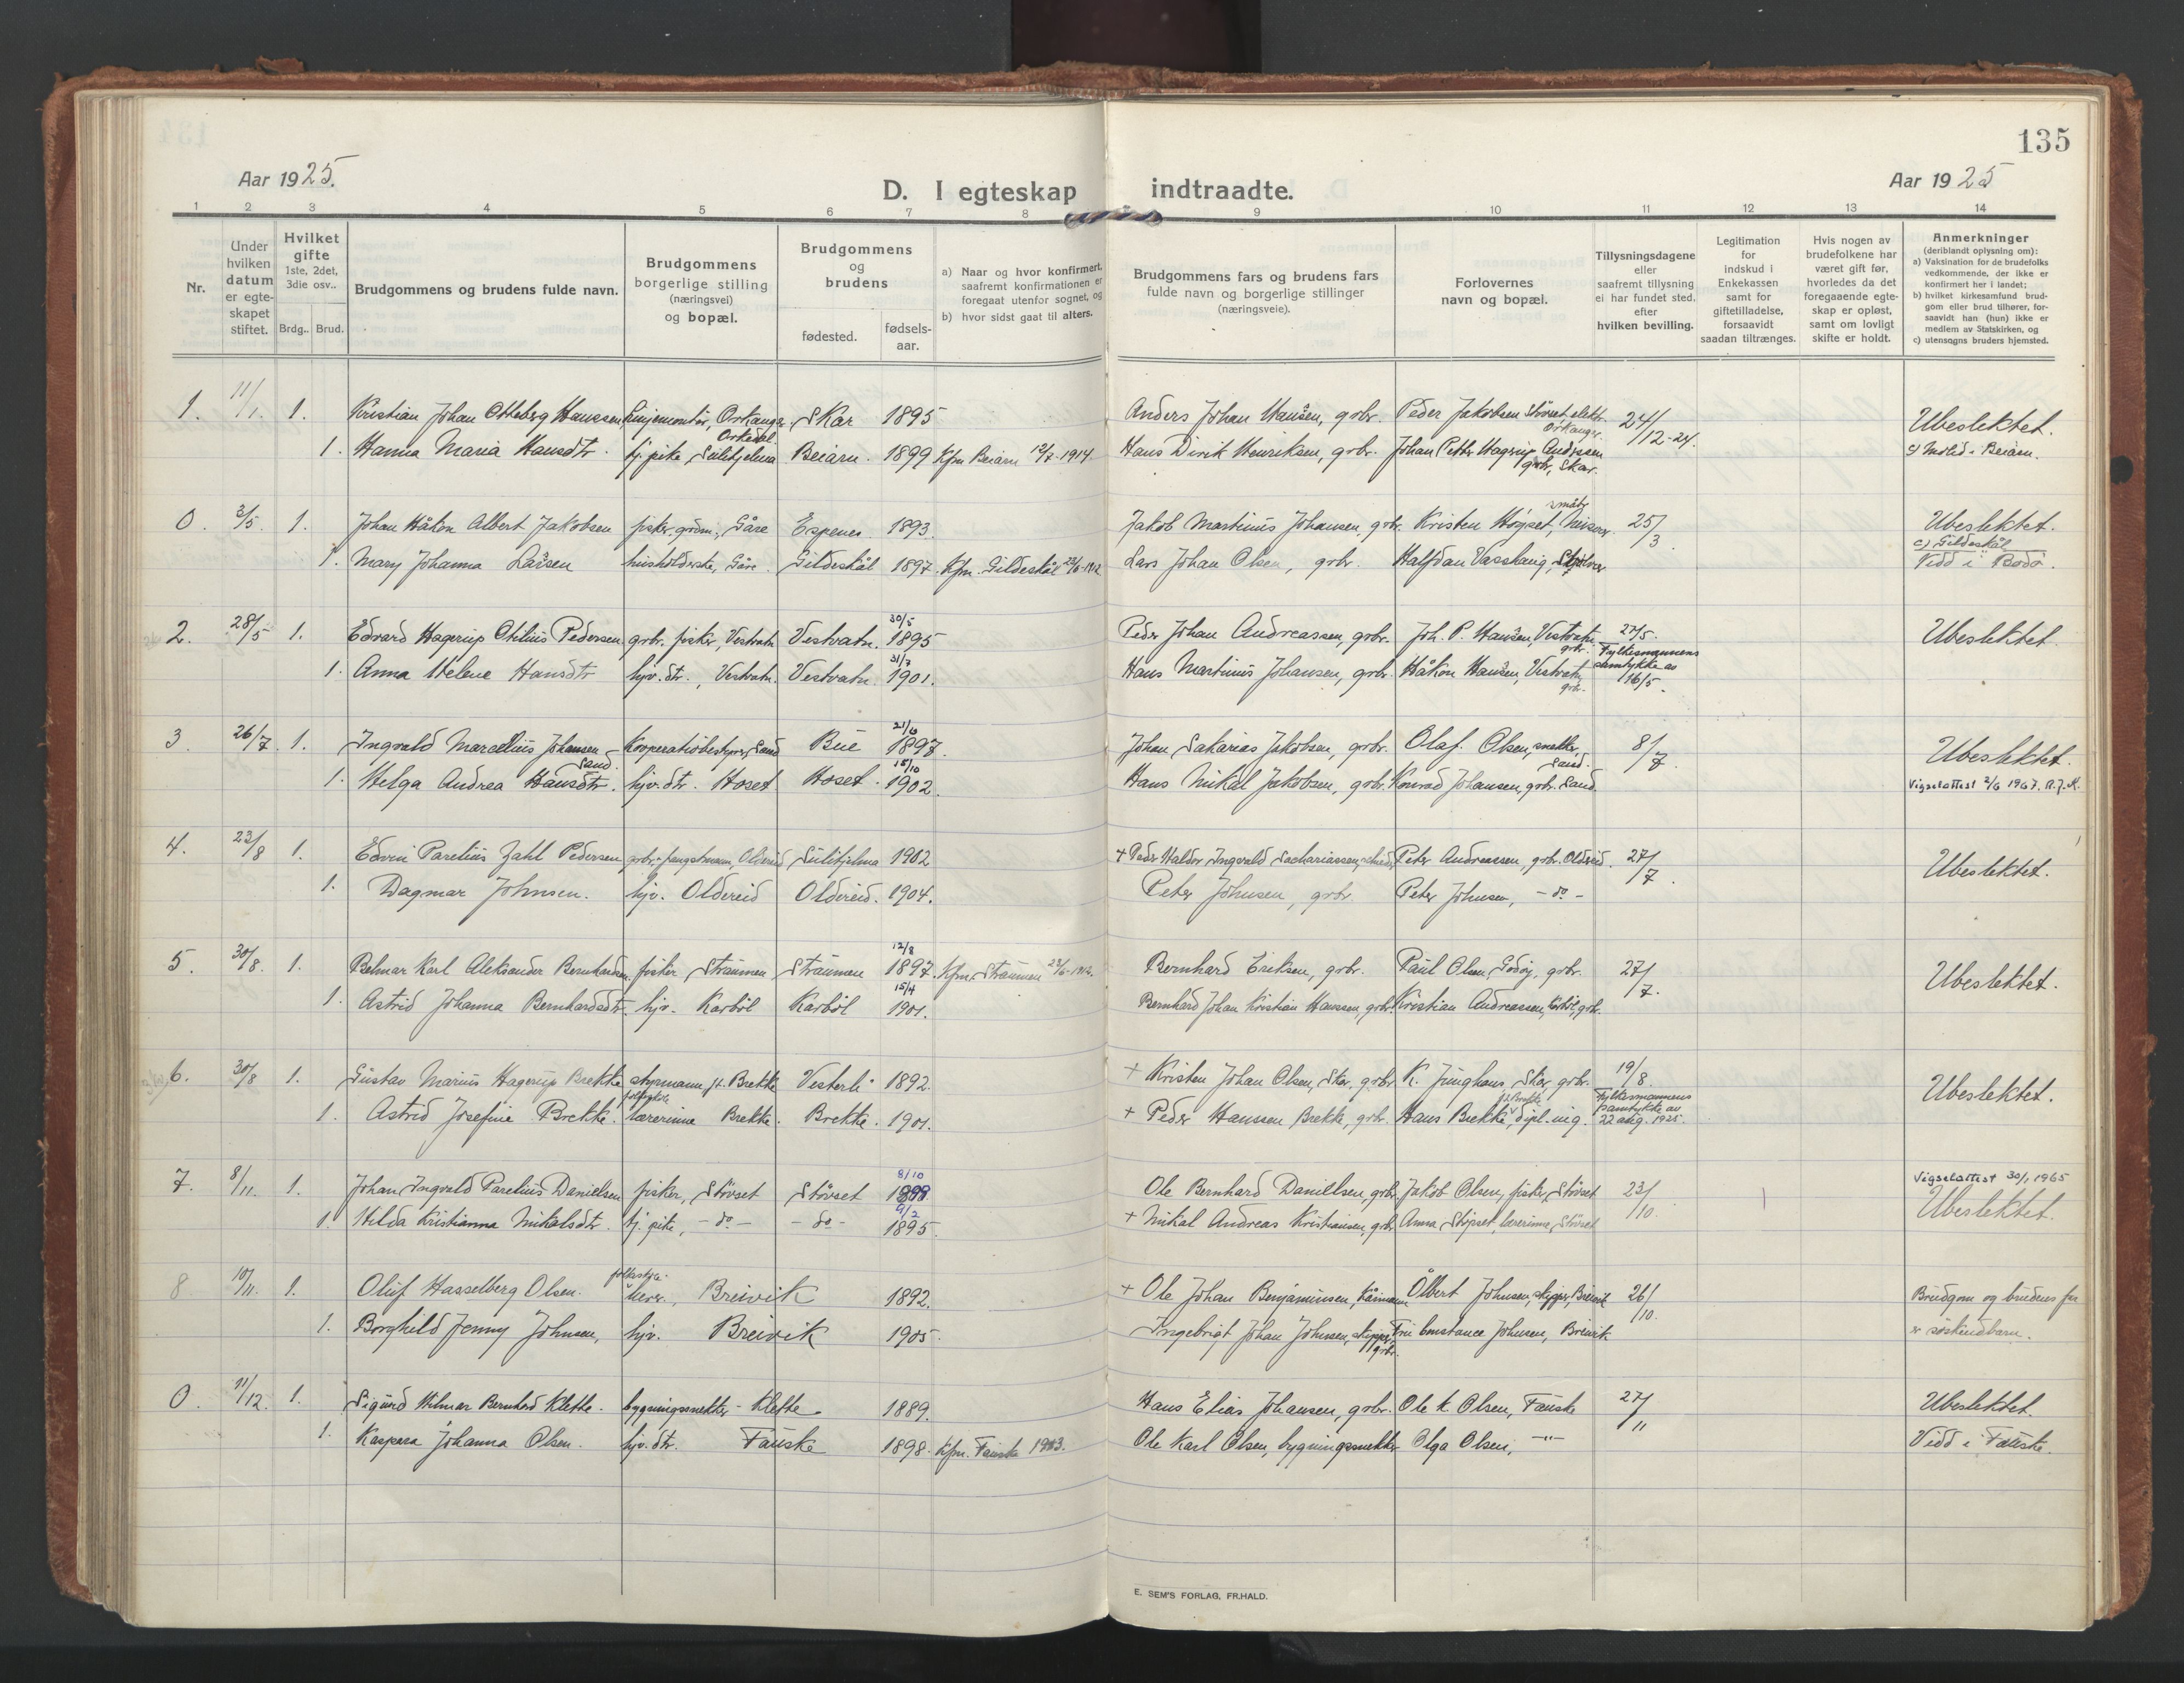 135
Aar 1925.
D. I egteskap indtraadte.
Aar 1925
1 2 3 4 5 6 7 8 9 10 11 12 13 14
Nr.
Under hvilken datum er egteskapet stiftet.
Hvilket gifte 1ste, 2det, 3die osv..
Brdg.. Brud.
Brudgommens og brudens fulde navn.
Brudgommens borgerlige stilling (næringsvei) og bopæl.
Brudgommens og brudens
fødested.
fødsels-aar.
a) Naar og hvor konfirmert, saafremt konfirmationen er foregaat utenfor sognet, og
b) hvor sidst gaat til alters.
Brudgommens fars og brudens fars fulde navn og borgerlige stillinger (næringsveie).
Forlovernes navn og bopæl.
Tillysningsdagene eller saafremt tillysning ei har fundet sted, efter hvilken bevilling.
Legitimation for indskud i Enkekassen samt for giftetilladelse, forsaavidt saadan tiltrænges.
Hvis nogen av brudefolkene har været gift før, hvorledes da det foregaaende egteskap er opløst, samt om lovligt skifte er holdt.
Anmerkninger (deriblandt oplysning om):
a) Vaksination for de brudefolks vedkommende, der ikke er konfirmert her i landet;
b) hvilket kirkesamfund brudgom eller brud tilhører, forsaavidt han (hun) ikke er medlem av Statskirken, og
c) utensogns bruders hjemsted.
1. 11/1. 1. Kristian Johan Otteberg Hanssen Linjemontør, Orkanger Orkedal. Skar 1895 Anders Johan Hansen, grbr. Peder Jakobsen Störset, elektr. Orkanger. 24/12-24. Ubeslektet.
1. Hanna Maria Hansdtr. tj. pike, Sulitjelma Beiarn. 1899 Kfm Beiarn 12/7-1914 Hans Dirik Henriksen, grbr. Johan Petter Hagerup Andersen grbr, Skar. c) Beiarn.
0. 3/5. 1. Johan Håkon Albert Jakobsen fisker, Gåse Espenes 1893. Jakob Martinus Johansen, grbr. Kristen Høgset, 25/3 Ubeslektet.
1. Mary Johanna Larsen husholderske, Gåse. Gildeskål 1897. Kfm. Gildeskål 23/6-1912 Lars Johan Olsen, grbr. Halfdan Vasshaug, c) Gildeskål
Vidd i Bodø.
2. 28/5 1. Edvard Hagerup Othlius Pedersen grbr. fisker, Vestvatn Vestvatn. 30/5 1895 Peder Johan Andreassen, grbr. Joh. P. Hansen, Vestvatn grbr. 27/5. Fylkesmannens samtykke av 16/5. Ubeslektet.
1. Anna Helene Hansdtr hjv. dtr., Vestvatn. Vestvatn. 31/7 1901. Hans Martinus Johansen, grbr. Håkon Hansen, Vestvatn grbr.
3. 26/7. 1. Ingvald Marcelius Johansen Sand. Kooperativbestyrer, Sand Bue 21/6 1897. Johan Sakarias Jakobsen, grbr. Olaf. Olsen, snekker, Sand. 8/7 Ubeslektet.
1. Helga Andrea Hansdtr. hjv. dtr. Hoset Hoset. 15/10 1902. Hans Mikal Jakobsen, grbr. Konrad Johansen, grbr. Sand. Vigselattest 2/6 1967. A.J.K.
4. 23/8 1. Edvin Parelius Jahl Pedersen grbr. fangstmann, Oldereid Sulitjelma 1902 + Peder Haldor Ingvald Sachariassen, Peter Andreassen, grbr. Oldereid. 27/7. Ubeslektet.
1. Dagmar Johnsen. hjv. Oldereid Oldereid. 1904. Peter Johnsen, grbr. Peter Johnsen, - do -
5. 30/8. 1. Belmar Karl Aleksander Bernhardsen fisker Straumen Straumen 12/8 1897. Kfm. Straumen 23/6-1912. Bernhard Eriksen, grbr. Paul Olsen, Godøy, grbr. 27/7. Ubeslektet.
1. Astrid Johanna Bernhardsdtr hjv. Karbøl Karbøl 15/4 1901. Bernhard Johan Kristian Hanssen, grbr. Kristian Andreassen, Karbøl, grbr.
6. 30/8 1. Gustav Marius Hagerup Brekke styrmann, Brekke Vesterli 1892. + Kristen Johan Olsen, Skar, grbr. K. Junghans, Skar, grbr. 19/8. Fylkesmannens samtykke av 22 aug. 1925. Ubeslektet.
1. Astrid Josefine Brekke. lærerinne Brekke. Brekke. 1901. + Peder Hanssen Brekke, grbr. Hans Brekke, dipl-ing.
7. 8/11. 1. Johan Ingvald Parelius Danielsen fisker, Støvset Støvset 8/10 1898 Ole Bernhard Daniellsen, grbr. Jakob Olsen, fisker, Støvset 23/10. Vigselattest 30/1 1965
Ubeslektet.
1. Hilda Kristianna Mikalsdtr. tj. pike, - do - - do - 9/2 1895. + Mikal Andreas Kristiansen, grbr. Anna Støvset, lærerinne, Støvset
8 10/11. 1. Oluf Hasselberg Olsen. folkeskole-lærer, Breivik 1892. + Ole Johan Benjaminsen, Kårmann Ålbert Johnsen, skipper, Breivik 26/10. Brudgom og brudens far
1. Borghild Jenny Johnsen, hjv. Breivik 1905. Ingebrigt Johan Johnsen, skipper, grbr. Fru Constance Johnsen, Breivik er søskendbarn.
0. 11/12. 1. Sigurd Hilmar Bernhard Klette. bygningssnekker - Klette. 1889. Hans Elias Johansen, grbr. Ole K. Olsen, Fauske 27/11 Ubeslektet.
1. Kaspara Johanna Olsen. hjv. dtr. Fauske 1898. Kfm. Fauske 1913. Ole Karl Olsen, bygningssnekker Olga Olsen, -"- Vidd i Fauske.
E. SEM'S FORLAG, FR.HALD.